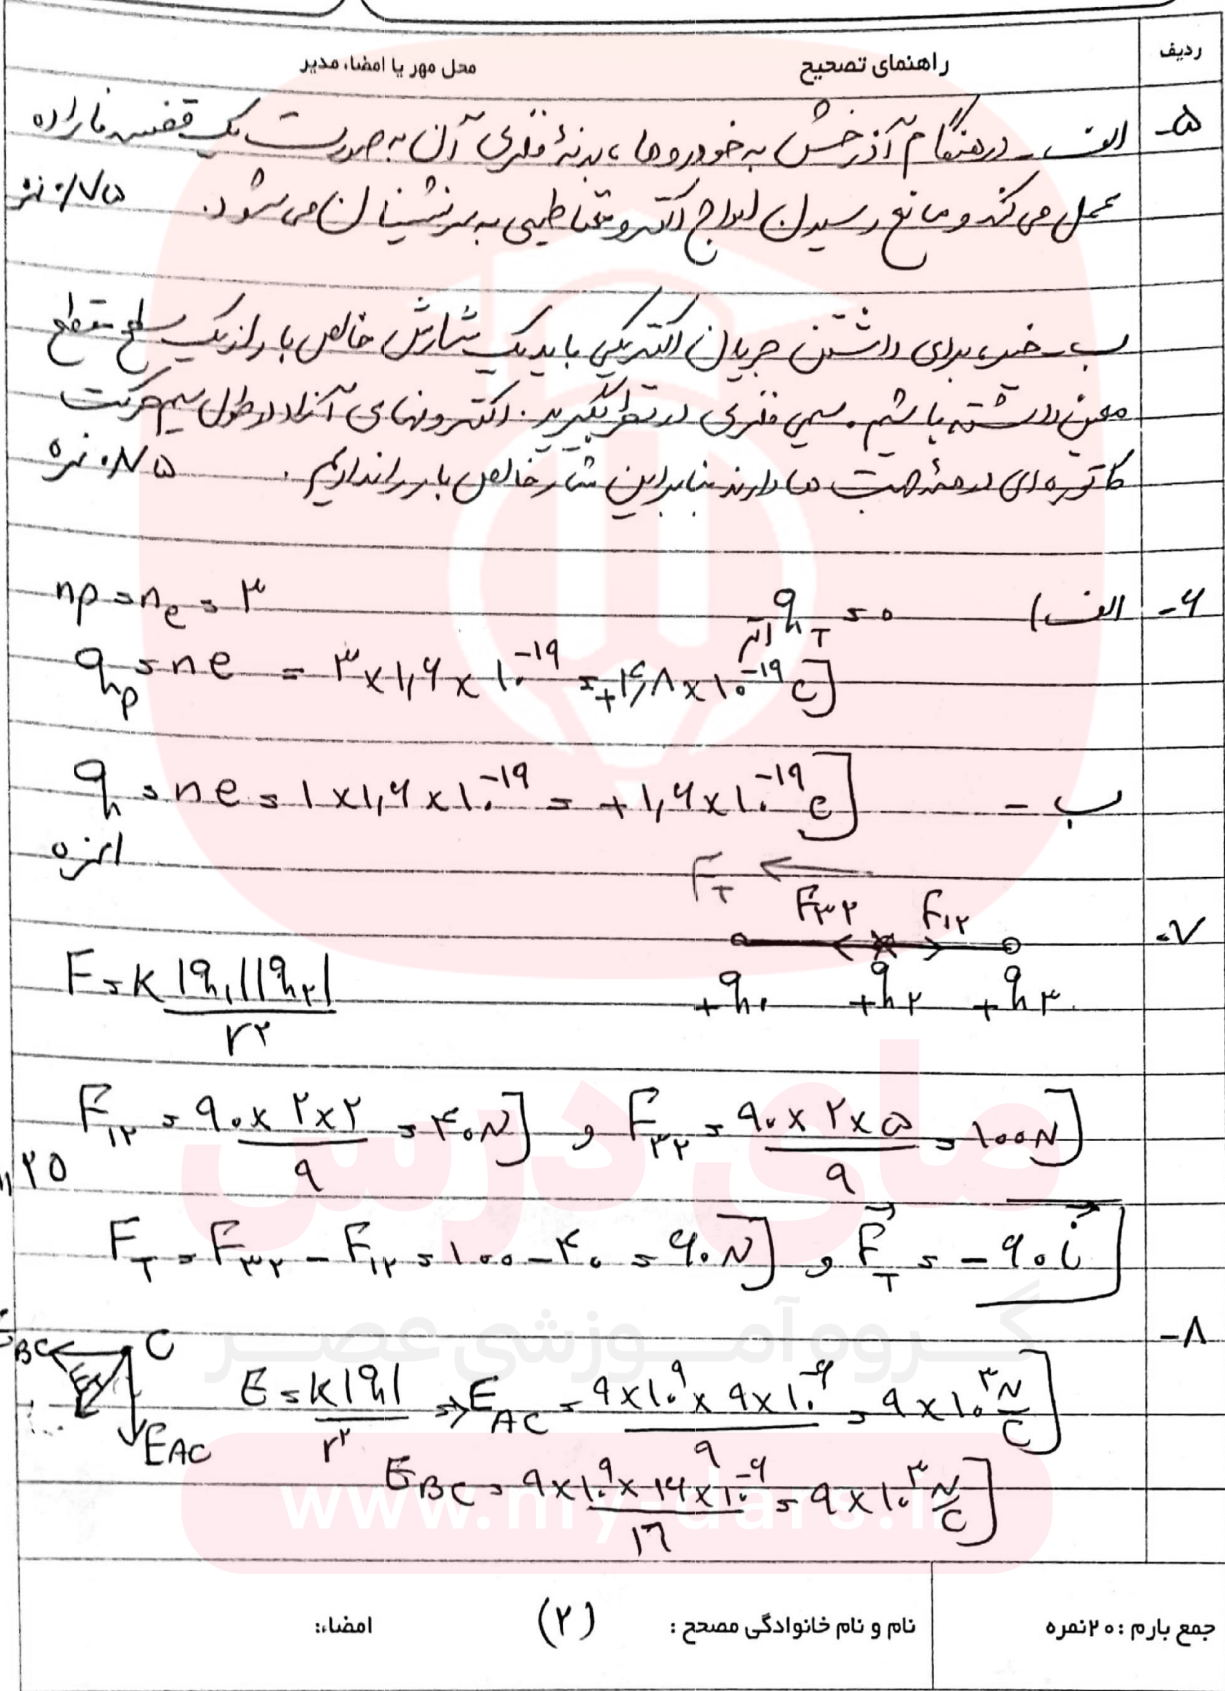 ردیف
راهنمای تصحیح
محل مهر یا امضاء مدیر
۵- الف - در هنگام آذرخش به خودروها، بدنهٔ فلزی آن به صورت یک قفس فاراده
عمل می کند و مانع رسیدن امواج الکترومغناطیسی به سرنشینان می شود. ۰/۷۵ نمره
ب - خیر، برای داشتن جریان الکتریکی باید یک شارش خالص بار از یک سطح مقطع
معین داشته باشیم. سیمی فلزی در نظر بگیرید. الکترونهای آزاد در طول سیم حرکت
کاتوره ای در همهٔ جهت ها دارند بنابراین شار خالص بار را نداریم. ۰/۷۵ نمره
۶- الف) q_T اتم = ۰ np = n_e = ۳
q_p = ne = ۳×۱,۶×۱۰^-۱۹ = +۴,۸×۱۰^-۱۹ C]
ب - q = ne = ۱×۱,۶×۱۰^-۱۹ = +۱,۶×۱۰^-۱۹ C]
۱ نمره
۷- F_T F_۳۲ F_۱۲
+q_۱ +q_۲ +q_۳
F = K |q_۱||q_۲| / r^۲
F_۱۲ = ۹۰×۲×۲ / ۹ = ۴۰N] و F_۳۲ = ۹۰×۲×۵ / ۹ = ۱۰۰N]
۱,۲۵
F_T = F_۳۲ - F_۱۲ = ۱۰۰ - ۴۰ = ۶۰N] و F_T = -۶۰ i]
۸-
E_BC C E_T E_AC
E = K|q| / r^۲ ⇒ E_AC = ۹×۱۰^۹×۹×۱۰^-۶ / ۹ = ۹×۱۰^۳ N/C]
E_BC = ۹×۱۰^۹×۱۶×۱۰^-۶ / ۱۶ = ۹×۱۰^۳ N/C]
مای درس
گروه آموزشی عصر
www.my-dars.ir
جمع بارم : ۲۰نمره
نام و نام خانوادگی مصحح : (۲)
امضاء: